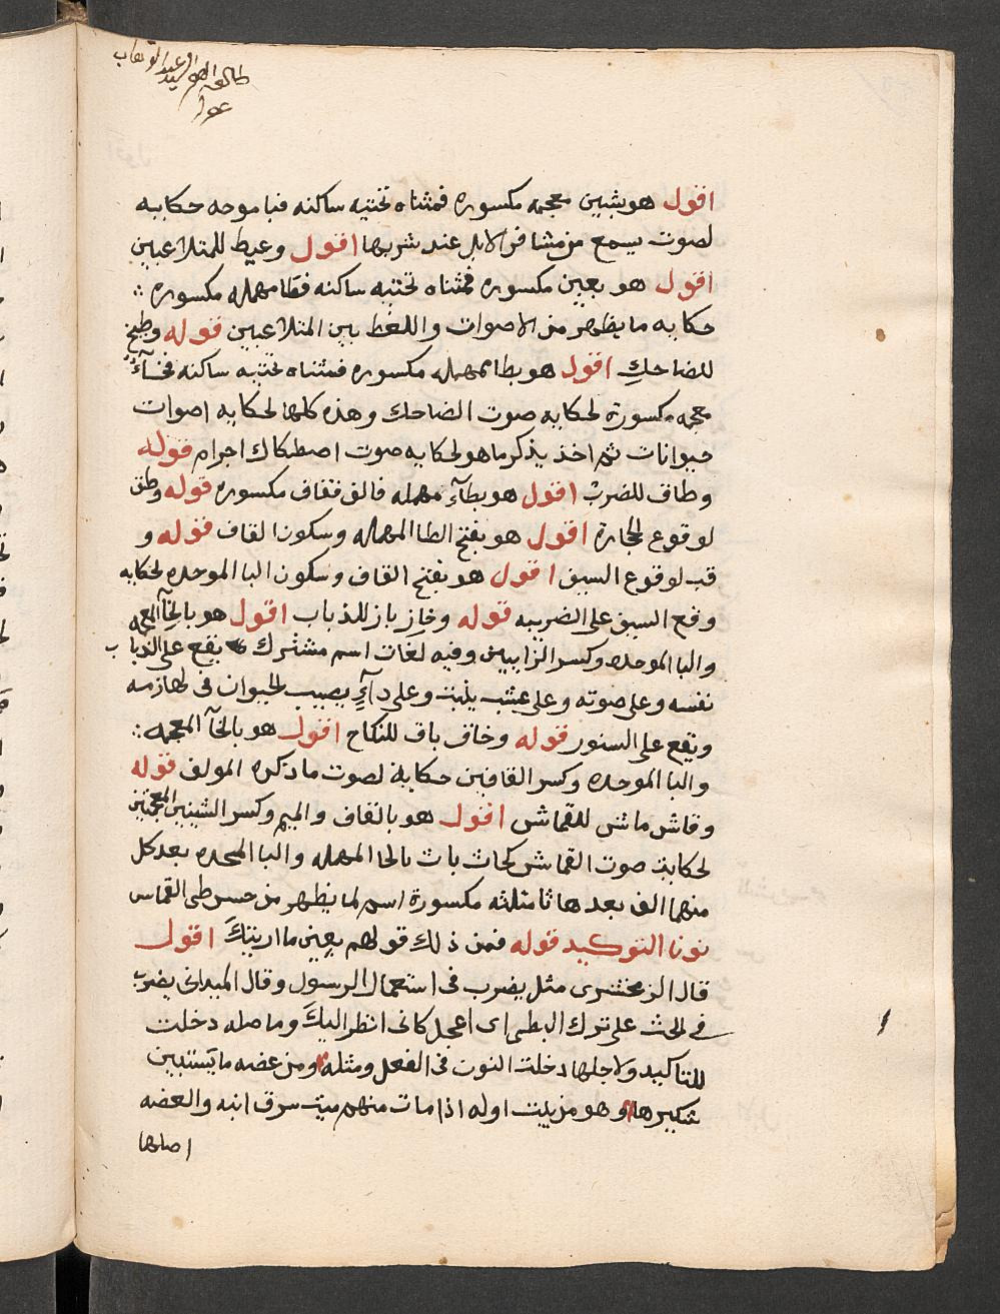 طالعه الفقير السيد عبد الوهاب
اقول هو بشين معجمه مكسوره فمثناه تحتيه ساكنه فبا موحده حكايه
لصوت يسمع من مشافر الابل عند شربها اقول وعيط للمتلاعبين
اقول هو بعين مكسوره فمثناه تحتيه ساكنه فطا مهمله مكسوره
حكايه ما يظهر من الاصوات واللغط بين المتلاعبين قوله وطيخ
للضاحك اقول هو بطا مهمله مكسوره فمثناه تحتيه ساكنه فخآءٌ
معجمه مكسورة لحكايه صوت الضاحك وهذه كلها لحكايه اصوات
حيوانات ثم اخذ يذكر ما هو لحكايه صوت اصطكاك اجرام قوله
وطاق للضرب اقول هو بطآءٍ مهمله فالف فقاف مكسوره قوله وطق
لوقوع الحجارة اقول هو بفتح الطا المهمله وسكون القاف قوله و
قب لوقوع السيف اقول هو بفتح القاف وسكون البا الموحده لحكايه
وقع السيف على الضريبه قوله وخاز باز للذباب اقول هو بالخآ المعجمه
والبا الموحده وكسر الزايين وفيه لغات اسم مشترك يقع على الذباب
نفسه وعلى صوته وعلى عشب ينبت وعلى دآءٍ يصيب الحيوان فى لهازمه
ويقع على السنور قوله وخاق باق للنكاح اقول هو بالخآ المعجمه
والبا الموحده وكسر القافين حكاية لصوت ما ذكره المولف قوله
وقاش ماش للقماش اقول هو بالقاف والميم وكسر الشينين المعجمتين
لحكاية صوت القماش كحاث باث بالحا المهمله والبا المحده بعد كل
منهما الف بعدها ثا مثلثه مكسورة اسم لما يظهر من حس طى القماس
نونا التوكيد قوله فمن ذلك قولهم بعين ما ارينك اقول
قال الزمخشرى مثل يضرب فى استعجال الرسول وقال الميدانى يضرب
فى الحث على ترك البطى اى اعجل كانى انظر اليك وما صله دخلت
للتاكيد ولاجلها دخلت النون فى الفعل ومثله ومن عضه ما ينبتين
شكيرها وهو من بيت اوله اذا مات منهم ميت سرق ابنه والعضه
اصلها